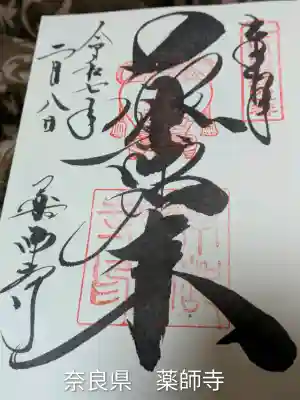 奉拝
薬師如来
令和七年
二月八日
薬師寺
奈良県　薬師寺